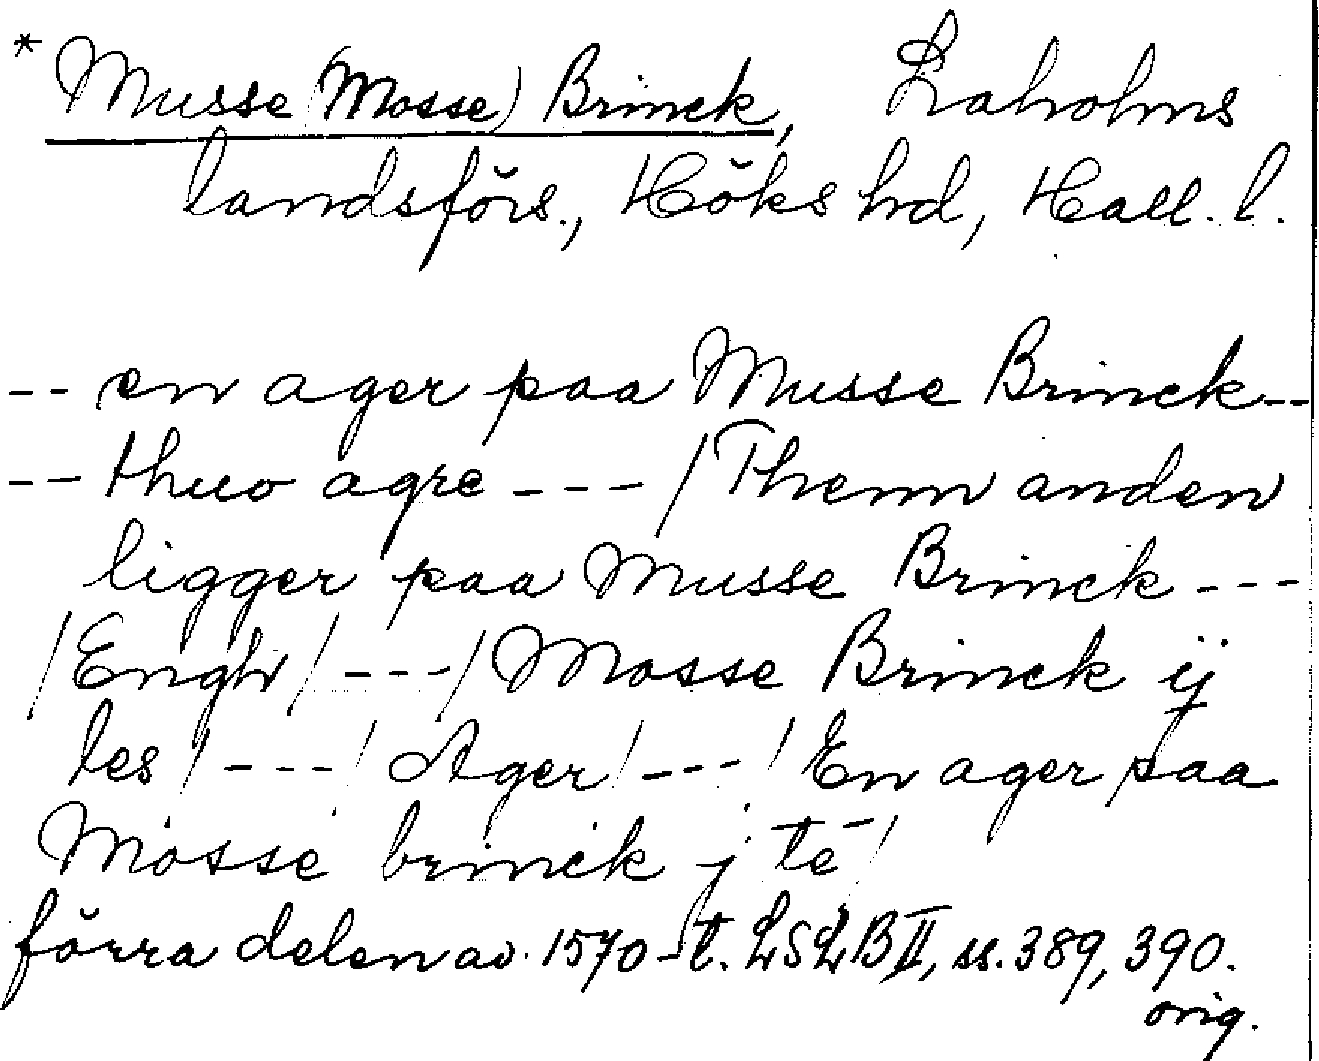 * Musse (Mosse) Brinck, Laholms
landsförs., Höks hd, Hall. l.
-- en ager paa Musse Brinck --
-- thuo agre --- / Thenn anden
ligger paa Musse Brinck ---
/Engh/ --- / Mosse Brinck ij
les / --- / Ager / --- / En ager paa
Mosse brinck j tē /
förra delen av 1570-t. LSLB II, ss. 389, 390.
orig.